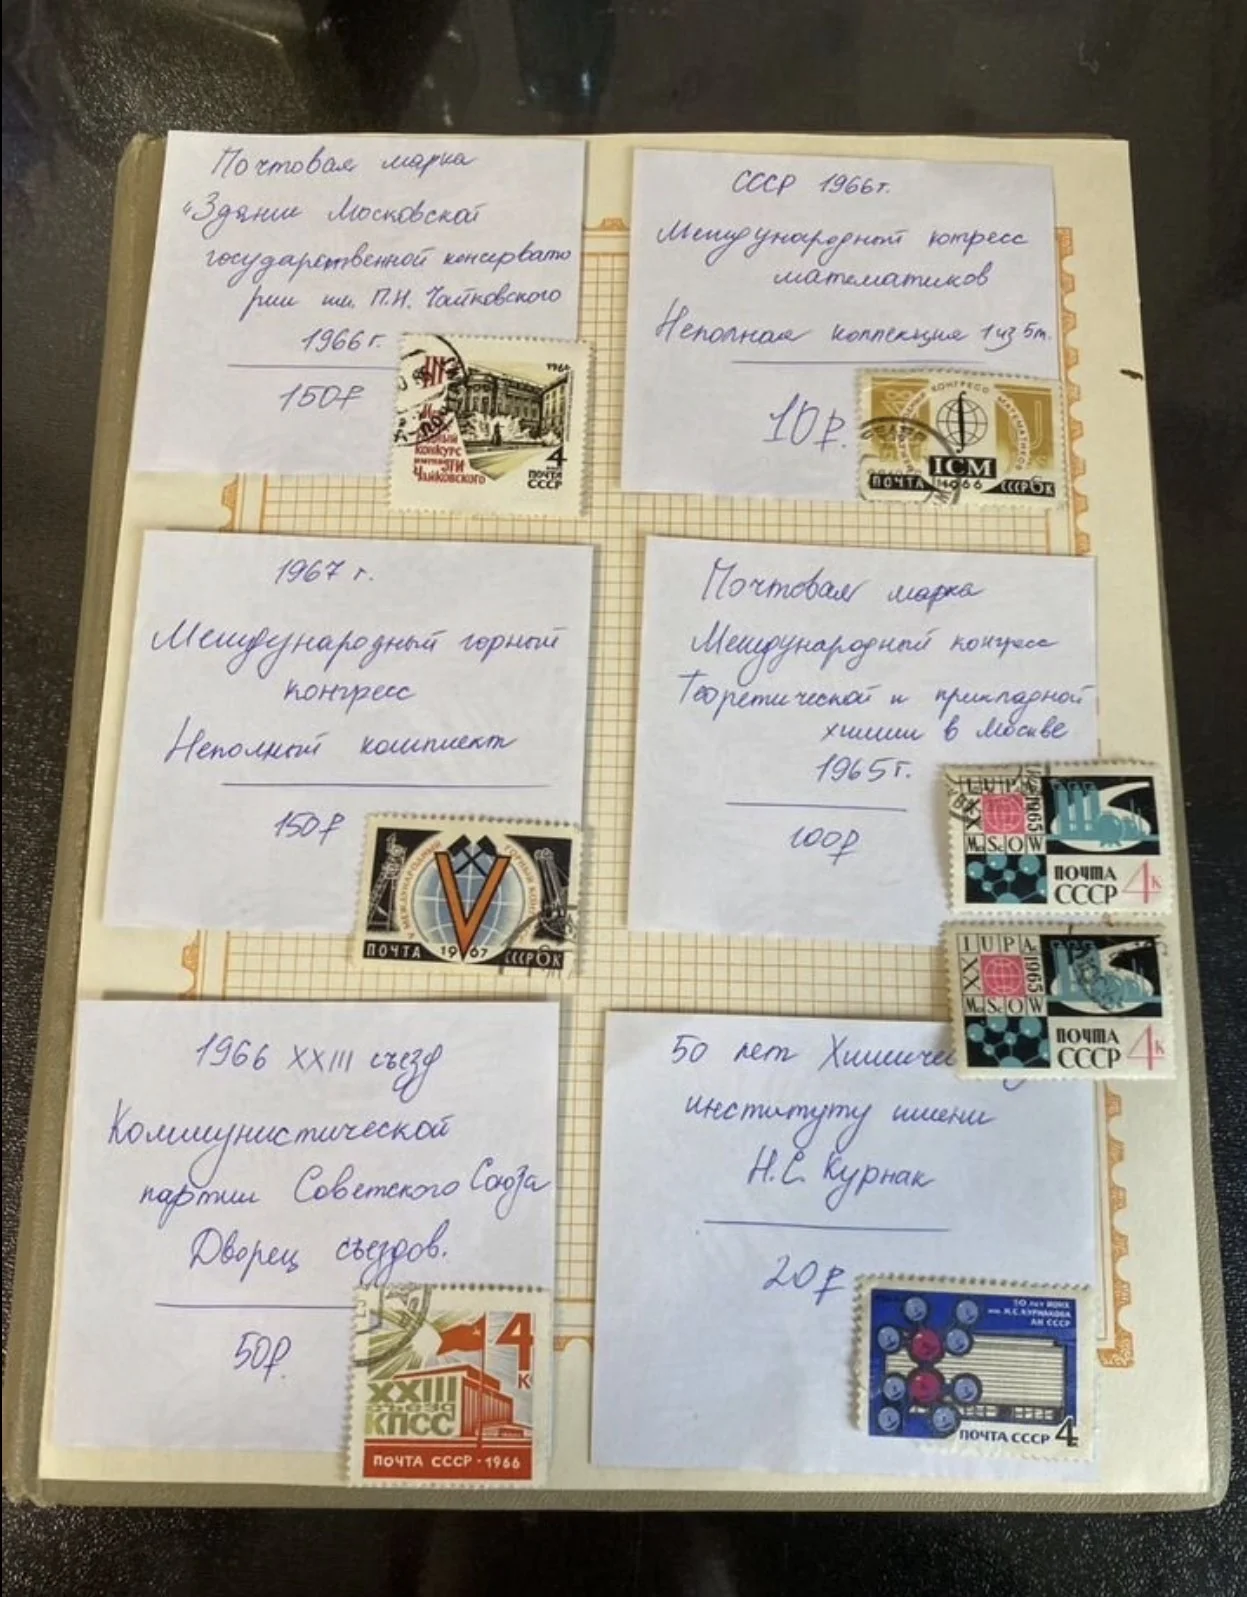 Почтовая марка
"Здание Московской
государственной консервато
рии им. П.И. Чайковского
1966 г.
150₽
III
1966
КОНКУРС
ИМЕНИ П.И.
ЧАЙКОВСКОГО
4
ПОЧТА
СССР
СССР 1966г.
Международный конгресс
математиков
Неполная коллекция 1 из 5т.
10₽.
КОНГРЕСС МАТЕМАТИКОВ
ICM
ПОЧТА 1966 СССР 6К
1967 г.
Международный горный
конгресс
Неполный комплект
150₽
МЕЖДУНАРОДНЫЙ ГОРНЫЙ КОНГРЕСС
V
ПОЧТА 1967 СССР 6К
Почтовая марка
Международный конгресс
Теоретической и прикладной
химии в Москве
1965г.
100₽
IUPAC
XX
1965
MoScOW
ПОЧТА
СССР 4К
IUPAC
XX
1965
MoScOW
ПОЧТА
СССР 4К
1966 XXIII съезд
Коммунистической
партии Советского Союза
Дворец съездов.
50₽
4
К
XXIII
СЪЕЗД
КПСС
ПОЧТА СССР·1966
50 лет
институту имени
Н.С. Курнак
20₽
50 ЛЕТ ИОНХ
ИМ. Н.С.КУРНАКОВА
АН СССР
ПОЧТА СССР 4К